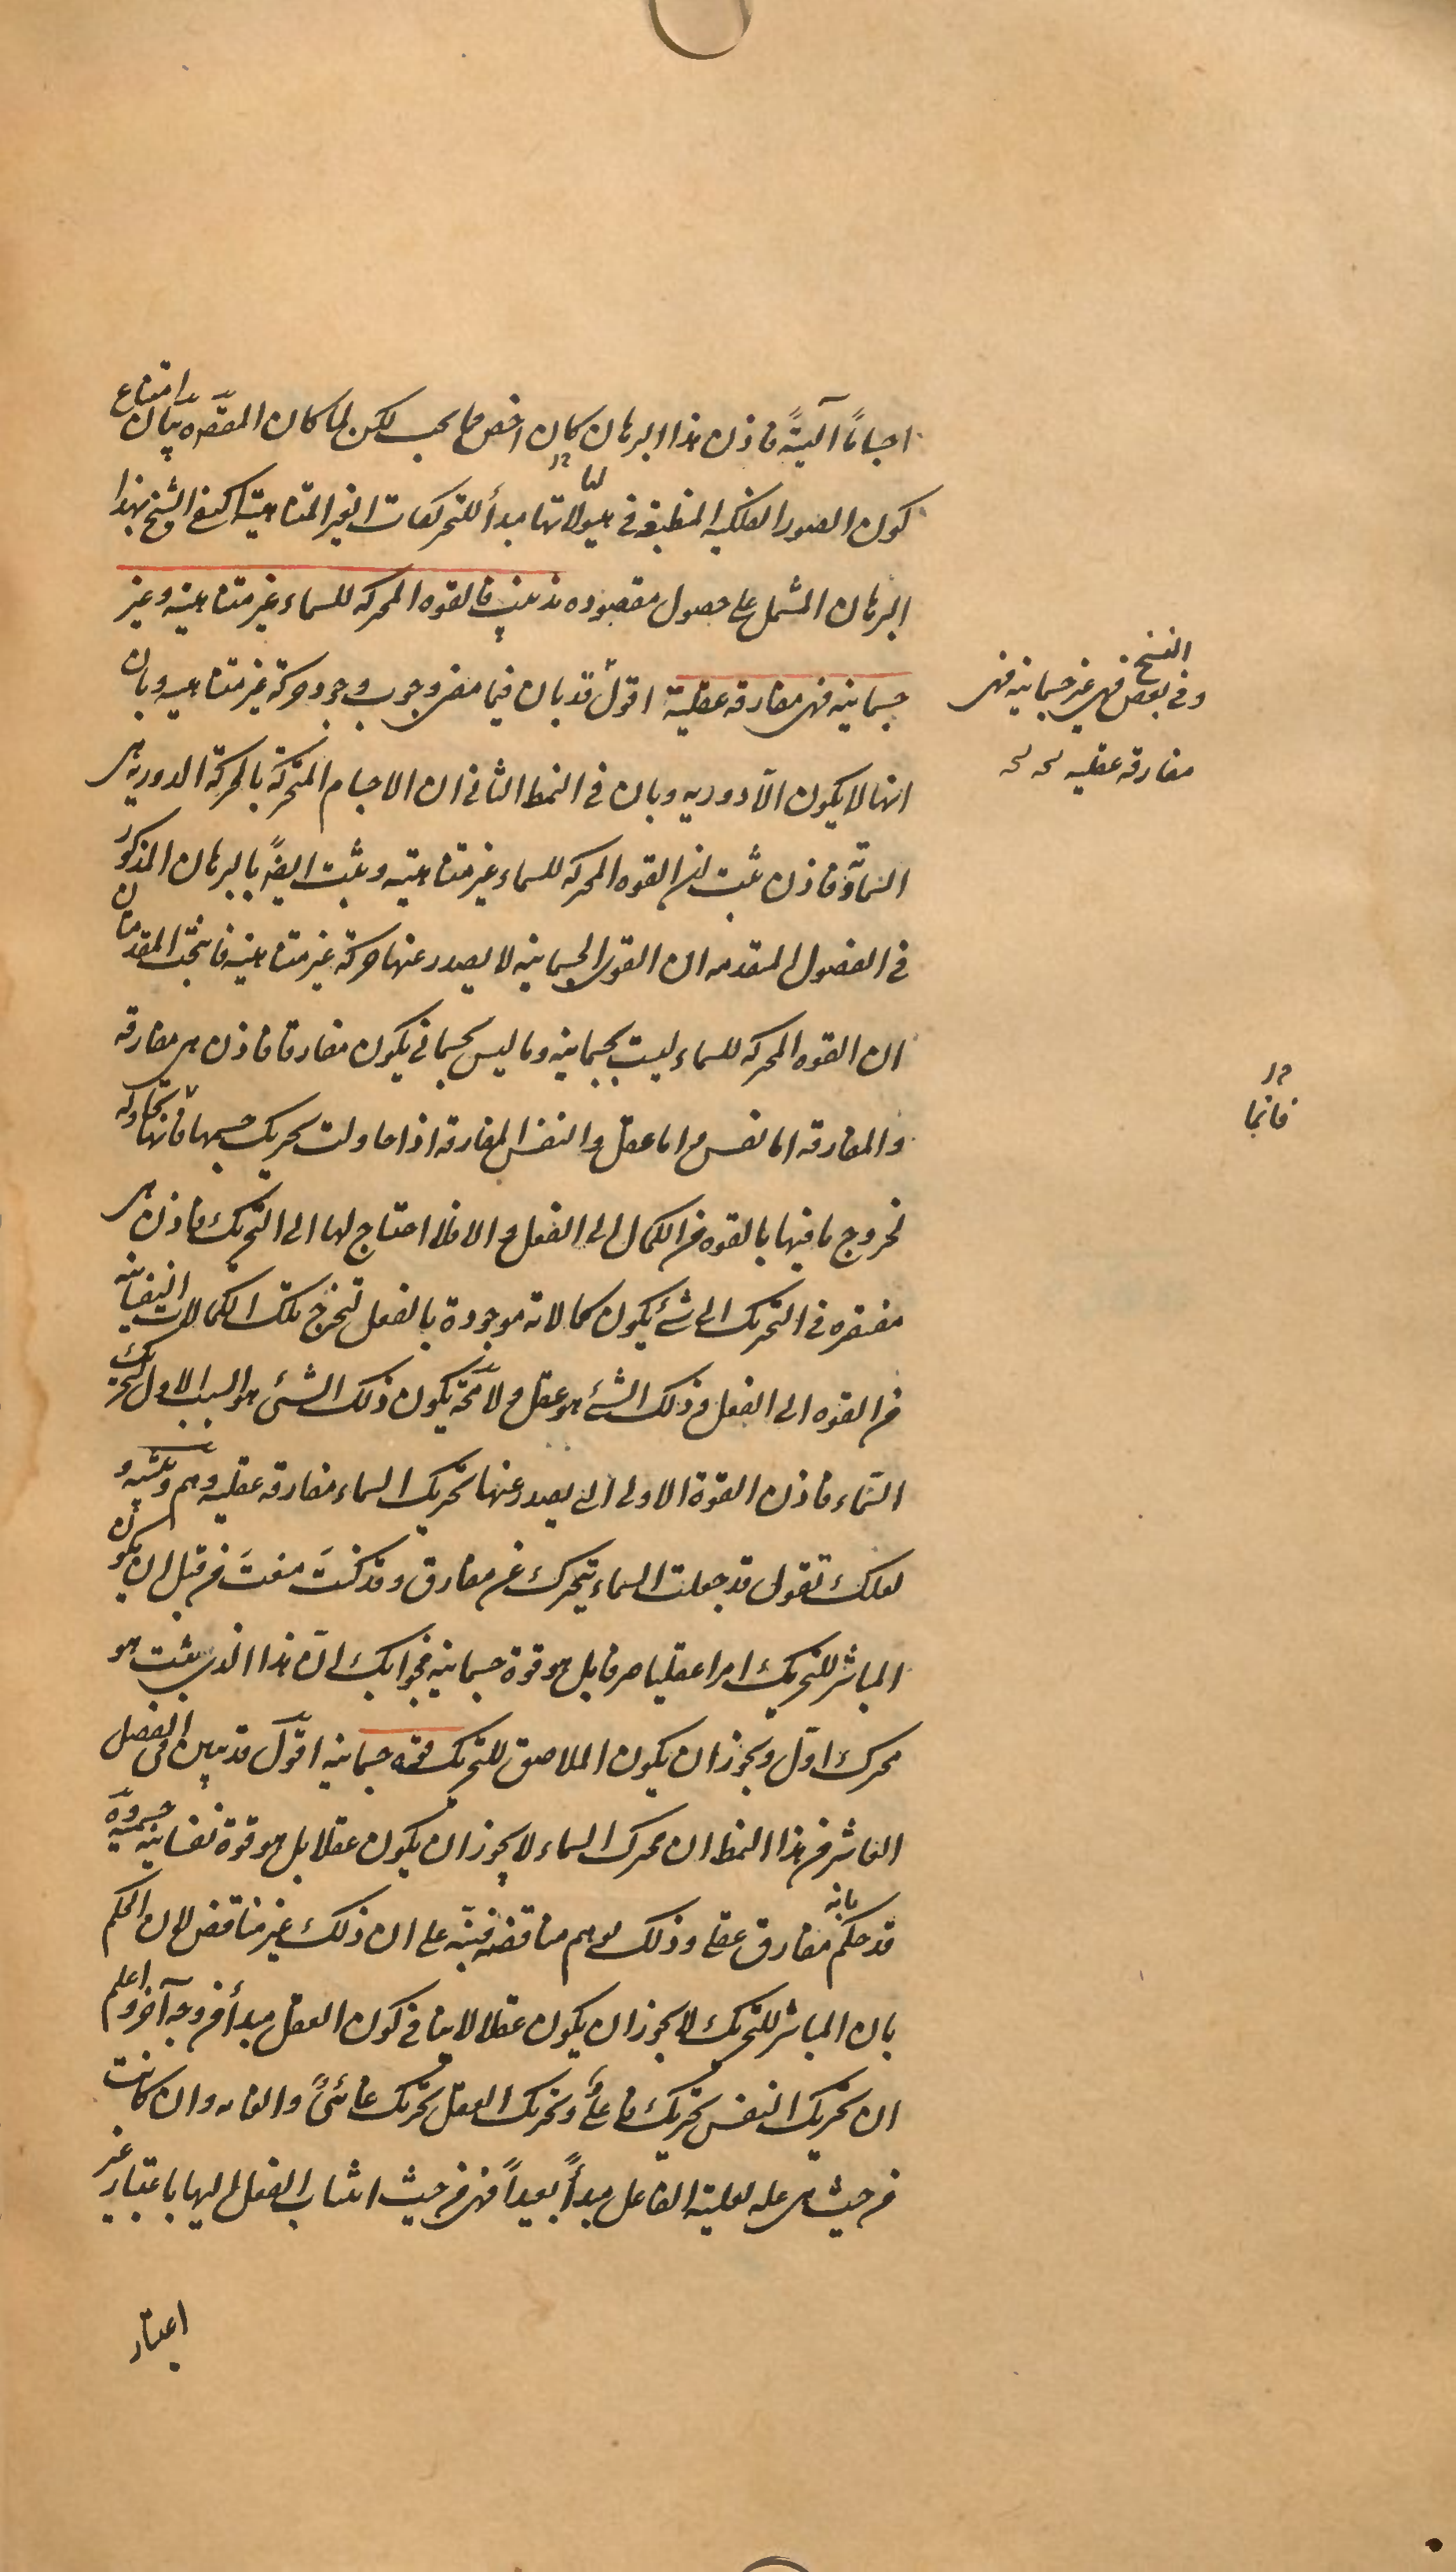 اجساماً آليّةً فاذن هذا البرهان كان اخص مما يجب لكن لما كان المقصود بيان امتناع
كون الصور الفلكيه المنطبقة فى هيولاتها مبدأ للتحريكات الغير المتناهية اكتفى الشيخ بهذا
البرهان المشتمل على حصول مقصوده تذنيب فالقوه المحركه للسماء غير متناهيه وغير
جسمانيه فهى مفارقه عقلية اقول قد بان فيما مضى وجوب وجود حركة غير متناهيه وبان
انها لا يكون الّا دوريه وبان فى النمط الثانى ان الاجسام المتحركة بالحركة الدوريه هى
السماويّة فاذن ثبت ان القوه المحركه للسماء غير متناهيه وثبت ايضاً بالبرهان المذكور
فى الفصول المتقدمه ان القوى الجسمانيه لا يصدر عنها حركة غير متناهيه فانتجت المقدمتان
ان القوه المحركه للسماء ليست بجسمانيه وما ليس بجسمانى يكون مفارقا فاذن هى مفارقه
والمفارقه اما نفس واما عقل والنفس المفارقه اذا حاولت تحريك جسمها فانها تحاوله
لخروج ما فيها بالقوه من الكمال الى الفعل والا فلا احتاج لها الى التحريك فاذن هى
مفتقره فى التحريك الى شئ يكون كمالاته موجودة بالفعل لتخرج تلك الكمالات النفسانيه
من القوه الى الفعل وذلك الشئ هو عقل ولا محّة يكون ذلك الشئ هو السبب الاول لتحريك
السّماء فاذن القوة الاولى التى يصدر عنها تحريك السماء مفارقه عقليه وهم وتنبيه و
لعلك تقول قد جعلت السماء تتحرك عن مفارق وقد كنتَ منعتَ من قبل ان يكون
المباشر للتحريك امرا عقليا صرفا بل هو قوة جسمانيه فجوابك انّ هذا الذى يثبت هو
محرك اوّل ويجوز ان يكون الملاصق للتحريك قوه جسمانيه اقول قد تبين فى الفصل
العاشر من هذا النمط ان محرك السماء لا يجوز ان يكون عقلا بل هو قوة نفسانيه جسميه وهٓ
قد حكم بانه مفارق عقلى وذلك يوهم مناقضه فنبّه على ان ذلك غير مناقض لان الحكم
بان المباشر للتحريك لا يجوز ان يكون عقلا لا ينافى كون العقل مبدأ من وجه آخر واعلم
ان تحريك النفس تحريك فاعلىٌّ وتحريك العقل تحريك غائىٌّ والغايه وان كانت
من حيث هى عله لعلية الفاعل مبدأً بعيداً فهى من حيث انتساب الفعل اليها باعتبار غير
اعتبار
وفى بعض النسخ فهى غير جسمانيه فهى
مفارقه عقليه
فانما